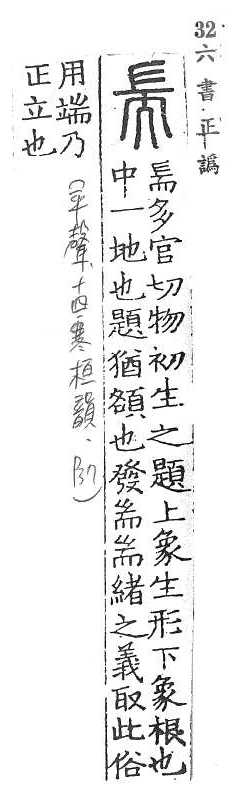 32六書·正譌
耑
耑多官切物初生之題上象生形下象根也
中一地也題猶額也發耑耑緒之義取此俗
用端乃
正立也
(平聲十四寒桓韻.